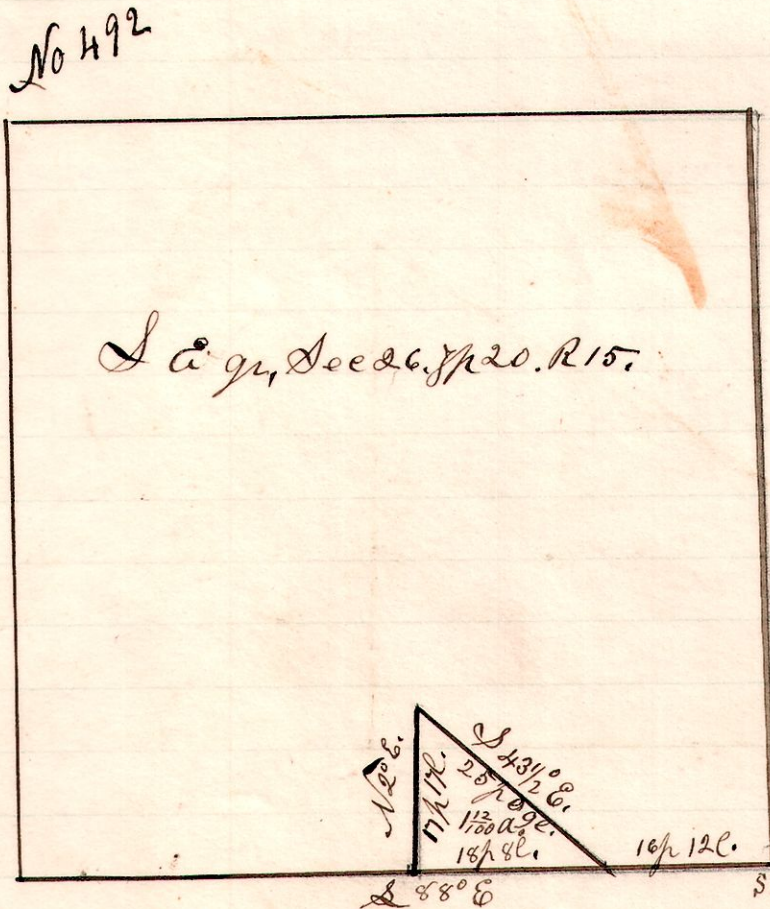 No 492
S E qr, Sec 26. Tp 20. R 15.
N 2° E.
17p 17l.
S 43 1/2° E.
25p 9l.
1 12/100 a.
18p 8l.
16p 12l.
S 88° E
S